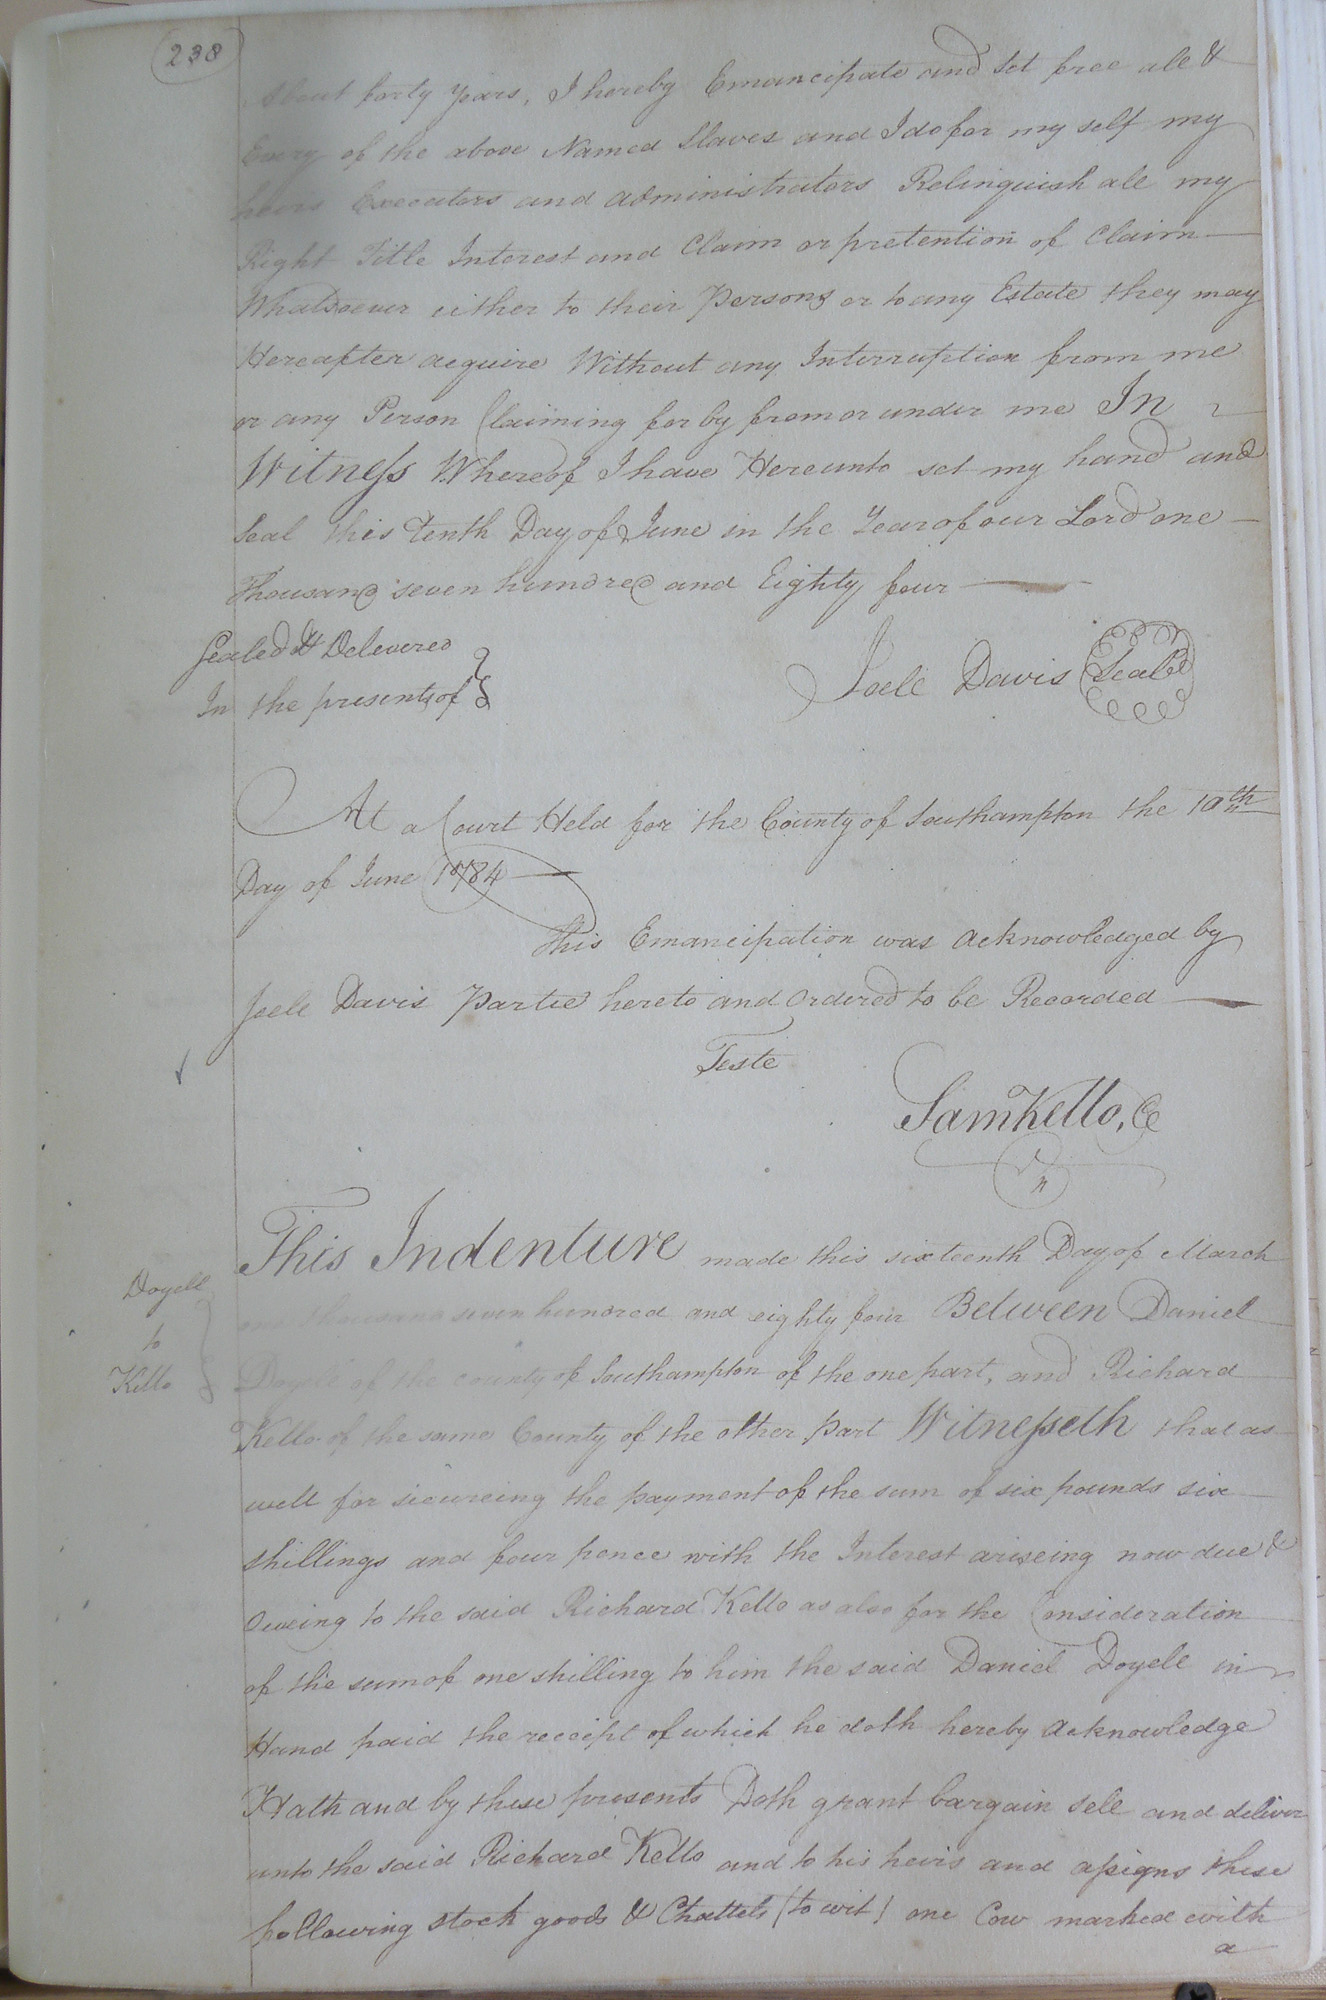 238
About forty Years, I hereby Emancipate and Set free all &
Every of the above Named Slaves and I do for my self my
heirs Executors and administrators Relinquish all my
Right Title Interest and Claim or pretention of Claim
Whatsoever either to their Persons or to any Estate they may
Hereafter acquire Without any Interruption from me
or any Person Claiming for by from or under me In
Witness Whereof I have Hereunto set my hand and
Seal this Tenth Day of June in the Year of our Lord one
Thousand seven hundred and Eighty four
Sealed & Delevered
In the presents of
Joell Davis Seal
At a Court Held for the County of Southampton the 10th
Day of June 1784
This Emancipation was acknowledged by
Joell Davis Partie hereto and Ordered to be Recorded
Teste
Sam Kello, Cc
Doyell
to
Kello
This Indenture made this sixteenth Day of March
one thousand seven hundred and eighty four Between Daniel
Doyell of the county of Southampton of the one part, and Richard
Kello of the same County of the other Part Witnesseth that as
well for secureing the payment of the sum of six pounds six
shillings and four pence with the Interest ariseing now due &
Oweing to the said Richard Kello as also for the Consideration
of the sum of one shilling to him the said Daniel Doyell in
Hand paid the receipt of which he doth hereby acknowledge
Hath and by these presents Doth grant bargain sell and deliver
unto the said Richard Kello and to his heirs and assigns these
following stock goods & Chattels (to wit) one Cow marked with
a